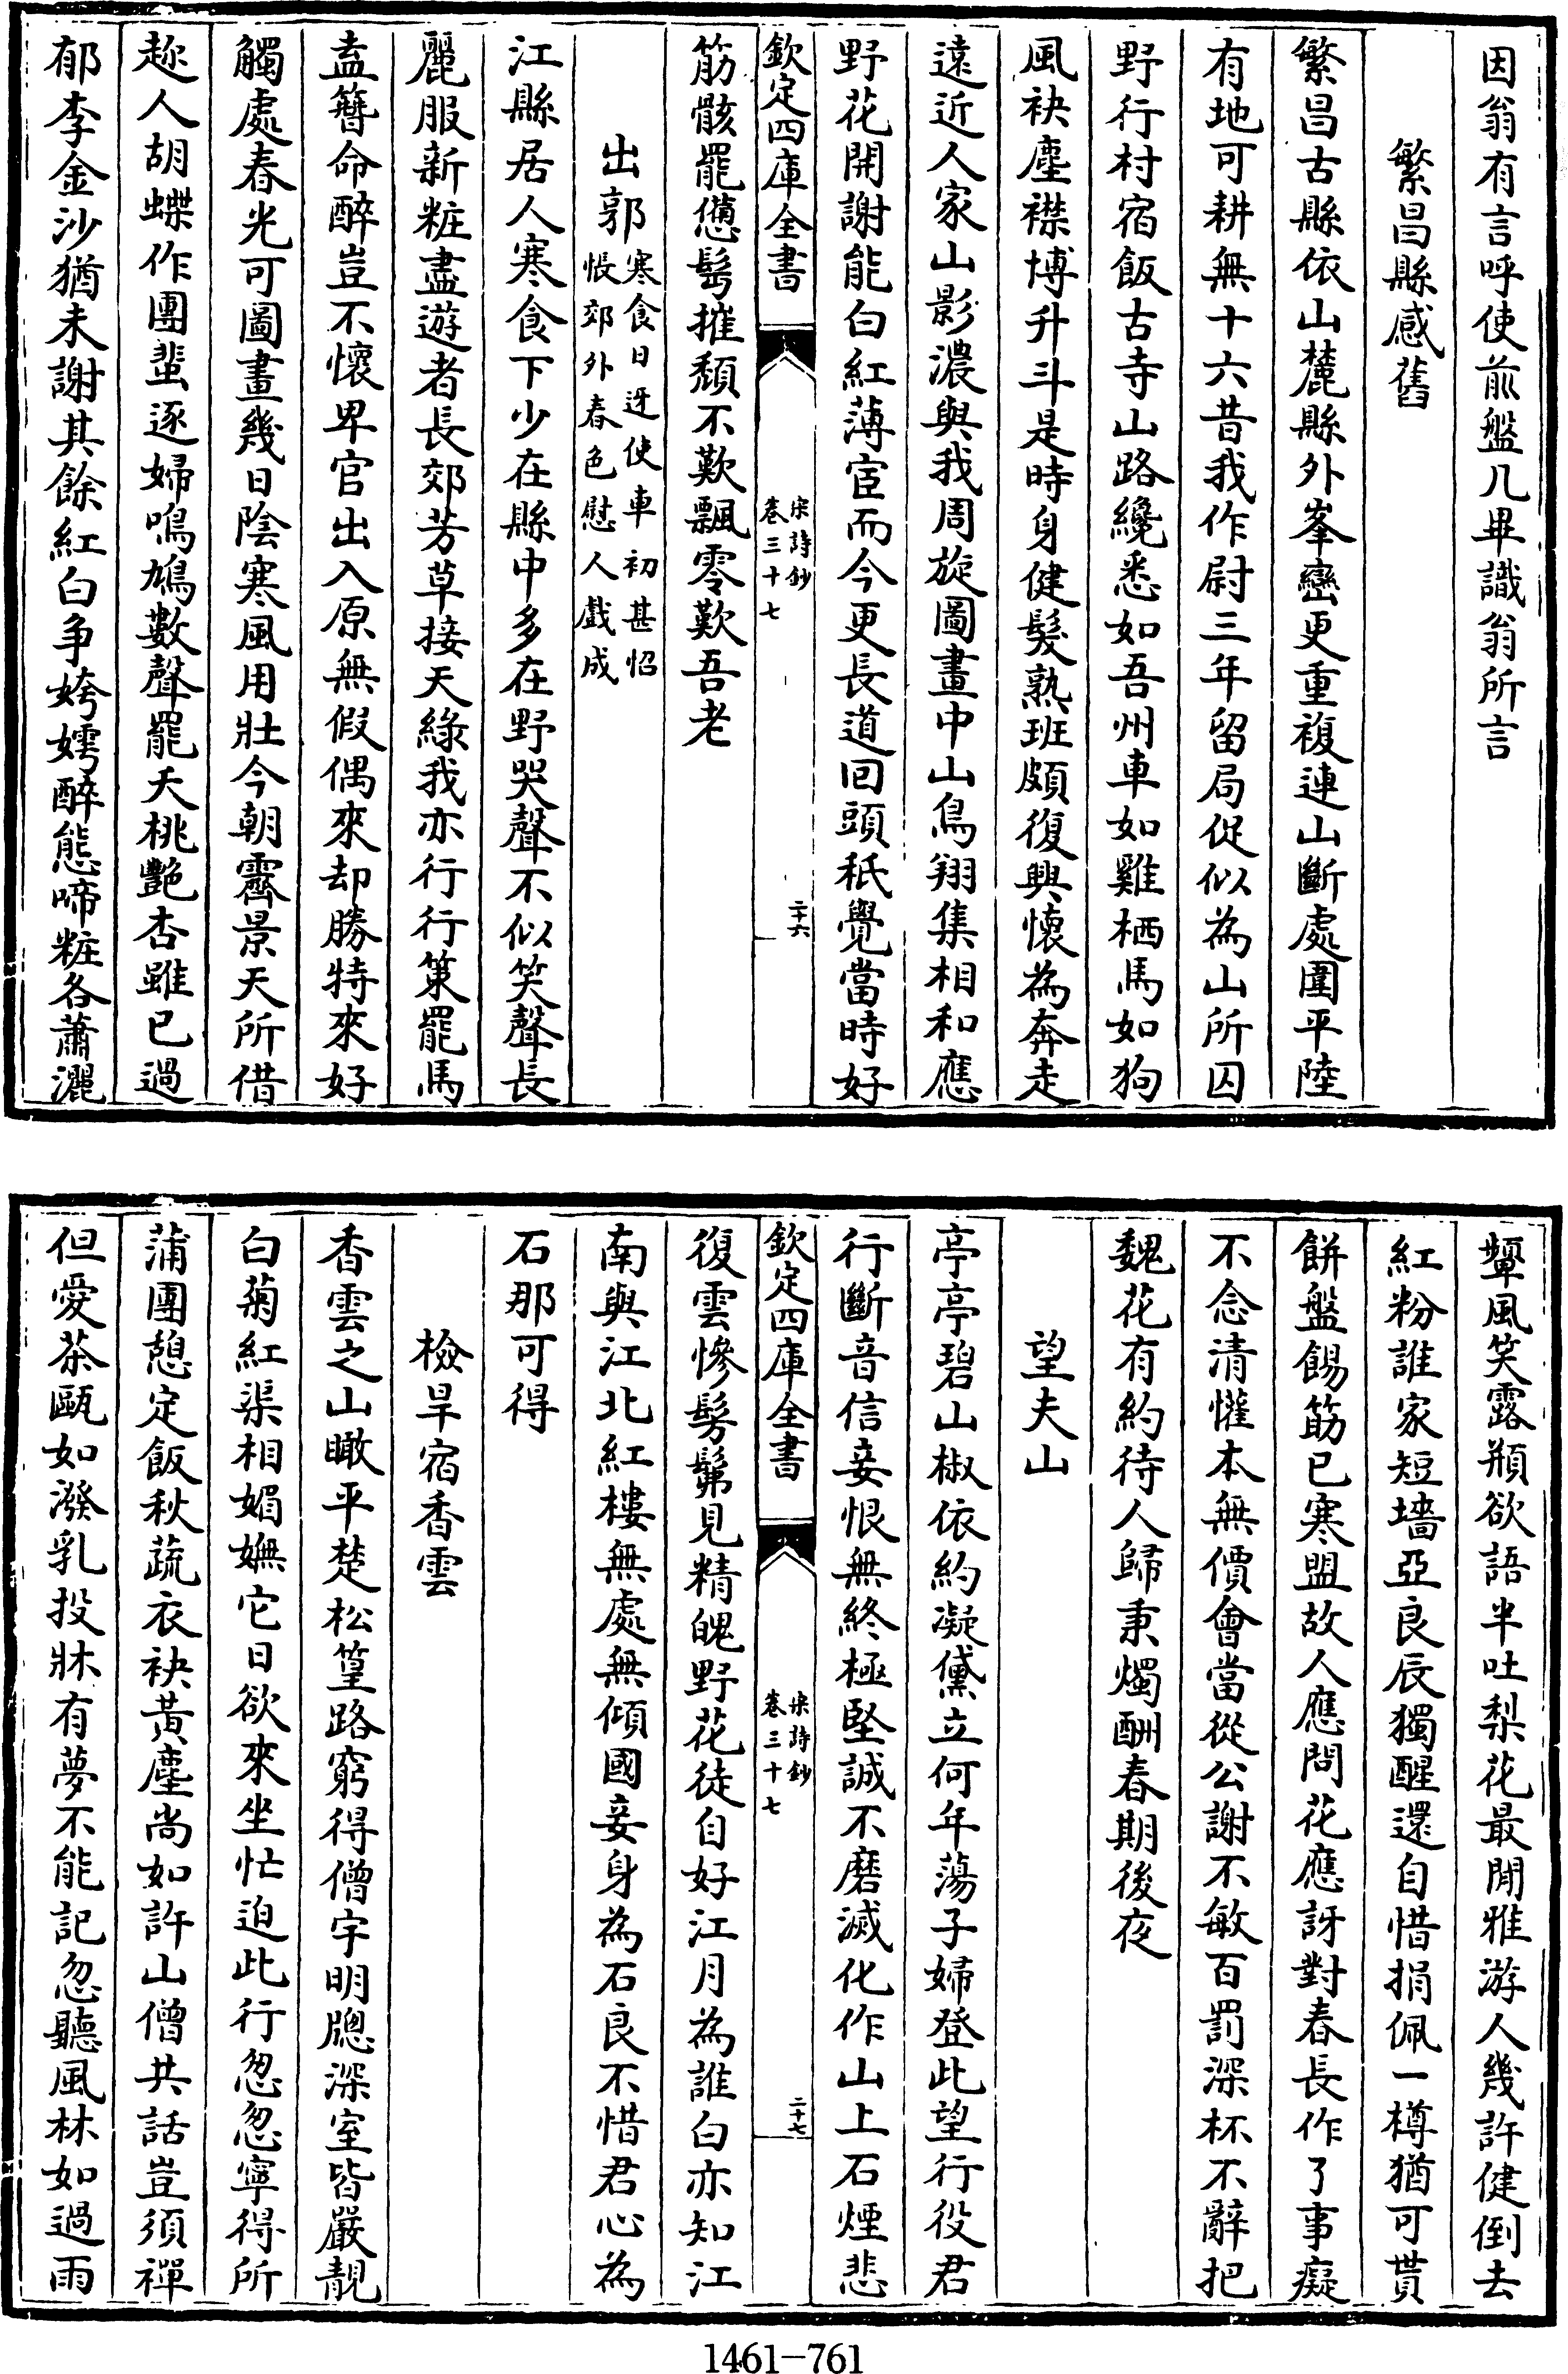 因翁有言呼使前盤几畢識翁所言
繁昌縣感舊
繁昌古縣依山麓縣外峯巒更重複連山斷處圍平陸
有地可耕無十六昔我作尉三年留局促似為山所囚
野行村宿飯古寺山路纔悉如吾州車如雞栖馬如狗
風袂塵襟博升斗是時身健髮熟班頗復興懷為奔走
遠近人家山影濃與我周旋圖畫中山鳥翔集相和應
野花開謝能白紅薄宦而今更長道回頭秖覺當時好
欽定四庫全書
宋詩鈔
卷三十七
二十六
筋骸罷憊髩摧頹不歎飄零歎吾老
出郭
寒食日迓使車初甚怊
悵郊外春色慰人戲成
江縣居人寒食下少在縣中多在野哭聲不似笑聲長
麗服新粧盡遊者長郊芳草接天綠我亦行行策罷馬
盍簪命醉豈不懷卑官出入原無假偶來却勝特來好
觸處春光可圖畫幾日陰寒風用壯今朝霽景天所借
趂人胡蝶作團蜚逐婦鳴鳩數聲罷夭桃艷杏雖已過
郁李金沙猶未謝其餘紅白爭姱嫮醉態啼粧各蕭灑
顰風笑露頩欲語半吐梨花最閒雅游人幾許健倒去
紅粉誰家短墻亞良辰獨醒還自惜捐佩一樽猶可貰
餅盤餳筯已寒盟故人應問花應訝對春長作了事癡
不念清懽本無價會當從公謝不敏百罰深杯不辭把
魏花有約待人歸秉燭酬春期後夜
望夫山
亭亭碧山椒依約凝黛立何年蕩子婦登此望行役君
行斷音信妾恨無終極堅誠不磨滅化作山上石煙悲
欽定四庫全書
宋詩鈔
卷三十七
二十七
復雲慘髣髴見精魄野花徒自好江月為誰白亦知江
南與江北紅樓無處無傾國妾身為石良不惜君心為
石那可得
檢旱宿香雲
香雲之山瞰平楚松篁路窮得僧宇明牕深室皆嚴靚
白菊紅渠相媚嫵它日欲來坐忙迫此行忽忽寧得所
蒲團憩定飯秋蔬衣袂黃塵尚如許山僧共話豈須禪
但愛茶甌如潑乳投牀有夢不能記忽聽風林如過雨
1461-761